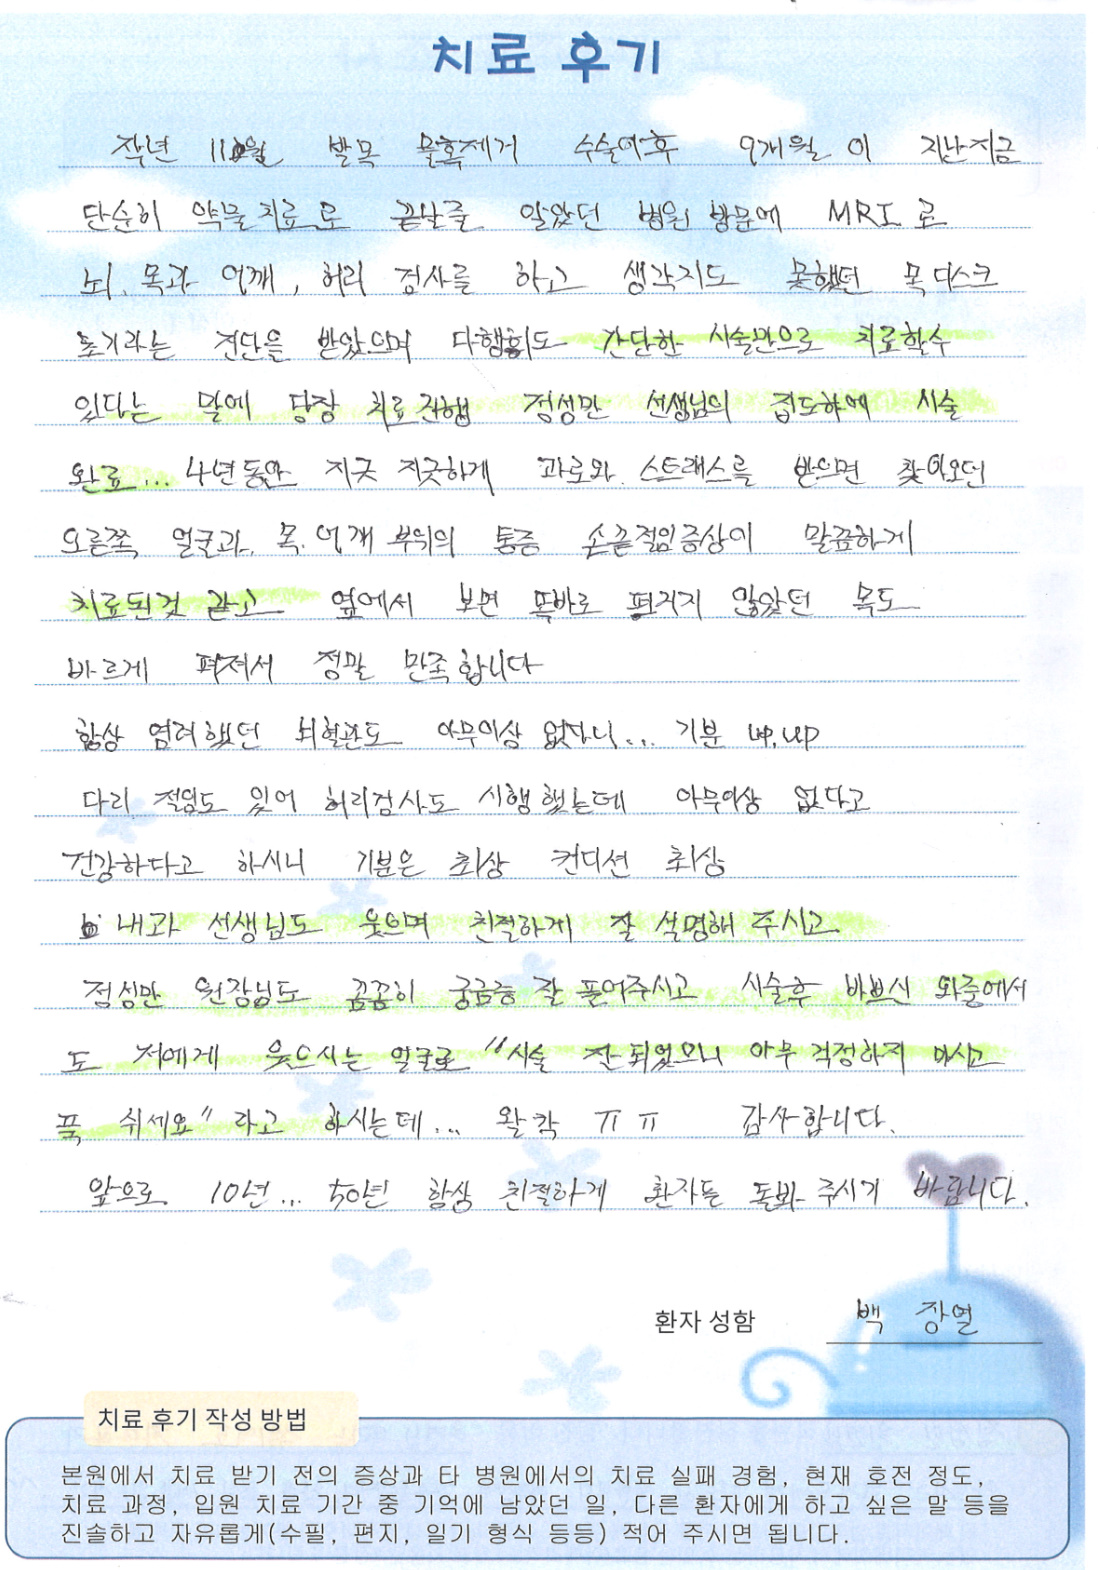 치료 후기
작년 11월 발목 물혹제거 수술이후 9개월이 지난지금
단순히 약물치료로 끝날줄 알았던 병원 방문에 MRI로
뇌, 목과 어깨, 허리 검사를 하고 생각지도 못했던 목디스크
초기라는 진단을 받았으며 다행히도 간단한 시술만으로 치료할수
있다는 말에 당장 치료진행 정성만 선생님의 집도하에 시술
완료... 4년동안 지긋 지긋하게 과로와 스트래스를 받으면 찾아오던
오른쪽 얼굴과, 목, 어깨 부위의 통증 손끝절임증상이 말끔하게
치료된것 같고 옆에서 보면 똑바로 펴지지 않았던 목도
바르게 펴져서 정말 만족합니다
항상 염려했던 뇌혈관도 아무이상 없다니... 기분 up, up
다리 절임도 있어 허리검사도 시행했는데 아무이상 없다고
건강하다고 하시니 기분은 최상 컨디션 최상
내과 선생님도 웃으며 친절하게 잘 설명해 주시고
정성만 원장님도 꼼꼼히 궁금증 잘 풀어주시고 시술후 바쁘신 와중에서
도 저에게 웃으시는 얼굴로 "시술 잔되었으니 아무 걱정하지 마시고
푹 쉬세요" 라고 하시는데... 왈칵 ㅠㅠ 감사합니다.
앞으로 10년... 50년 항상 친절하게 환자들 돌봐 주시기 바랍니다.
환자 성함 백 장열
치료 후기 작성 방법
본원에서 치료 받기 전의 증상과 타 병원에서의 치료 실패 경험, 현재 호전 정도,
치료 과정, 입원 치료 기간 중 기억에 남았던 일, 다른 환자에게 하고 싶은 말 등을
진솔하고 자유롭게(수필, 편지, 일기 형식 등등) 적어 주시면 됩니다.